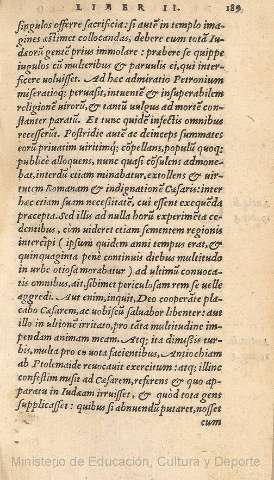 LIBER II. 189
singulos offerre sacrificia: si autē in templo ima
gines æstiment collocandas, debere cum tota Iu
dæorū gente prius immolare: præbere se quippe
iugulos cū mulieribus & paruulis ei, qui inter
ficere voluisset. Ad hæc admiratio Petronium
miseratioq; peruasit, intuentē & insuperabilem
religionē virorū, & tantū vulgus ad mortē con
stanter paratū. Et tunc quidē infectis omnibus
recesserūt. Postridie autē ac deinceps summates
eorū priuatim viritimq; cōpellans, populū quoq;
publicè alloquens, nunc quasi cōsulens admone-
bat, interdū etiam minabatur, extollens & vir-
tutem Romanam & indignationē Cæsaris: inter
hæc etiam suam necessitatē, cui essent exequēda
præcepta. Sed illis ad nulla horū experimēta ce-
dentibus, cùm videret etiam sementem regionis
intercipi (ipsum quidem anni tempus erat, &
quinquaginta penè continuis diebus multitudo
in vrbe otiosa morabatur) ad vltimū conuoca-
tis omnibus, ait, sibimet periculosam rem se velle
aggredi. Aut enim, inquit, Deo cooperante pla-
cabo Cæsarem, ac vobiscū saluabor libenter: aut
illo in vltionē irritato, pro tāta multitudine im-
pendam animam meam. Atq; ita dimissis tur-
bis, multa pro eo vota facientibus, Antiochiam
ab Ptolemaide reuocauit exercitum: atq; illinc
confestim misit ad Cæsarem, referens & quo ap-
paratu in Iudæam irruisset, & quòd tota gens
supplicasset: quibus si abnuendū putaret, nosset
cum
Ministerio de Educación, Cultura y Deporte